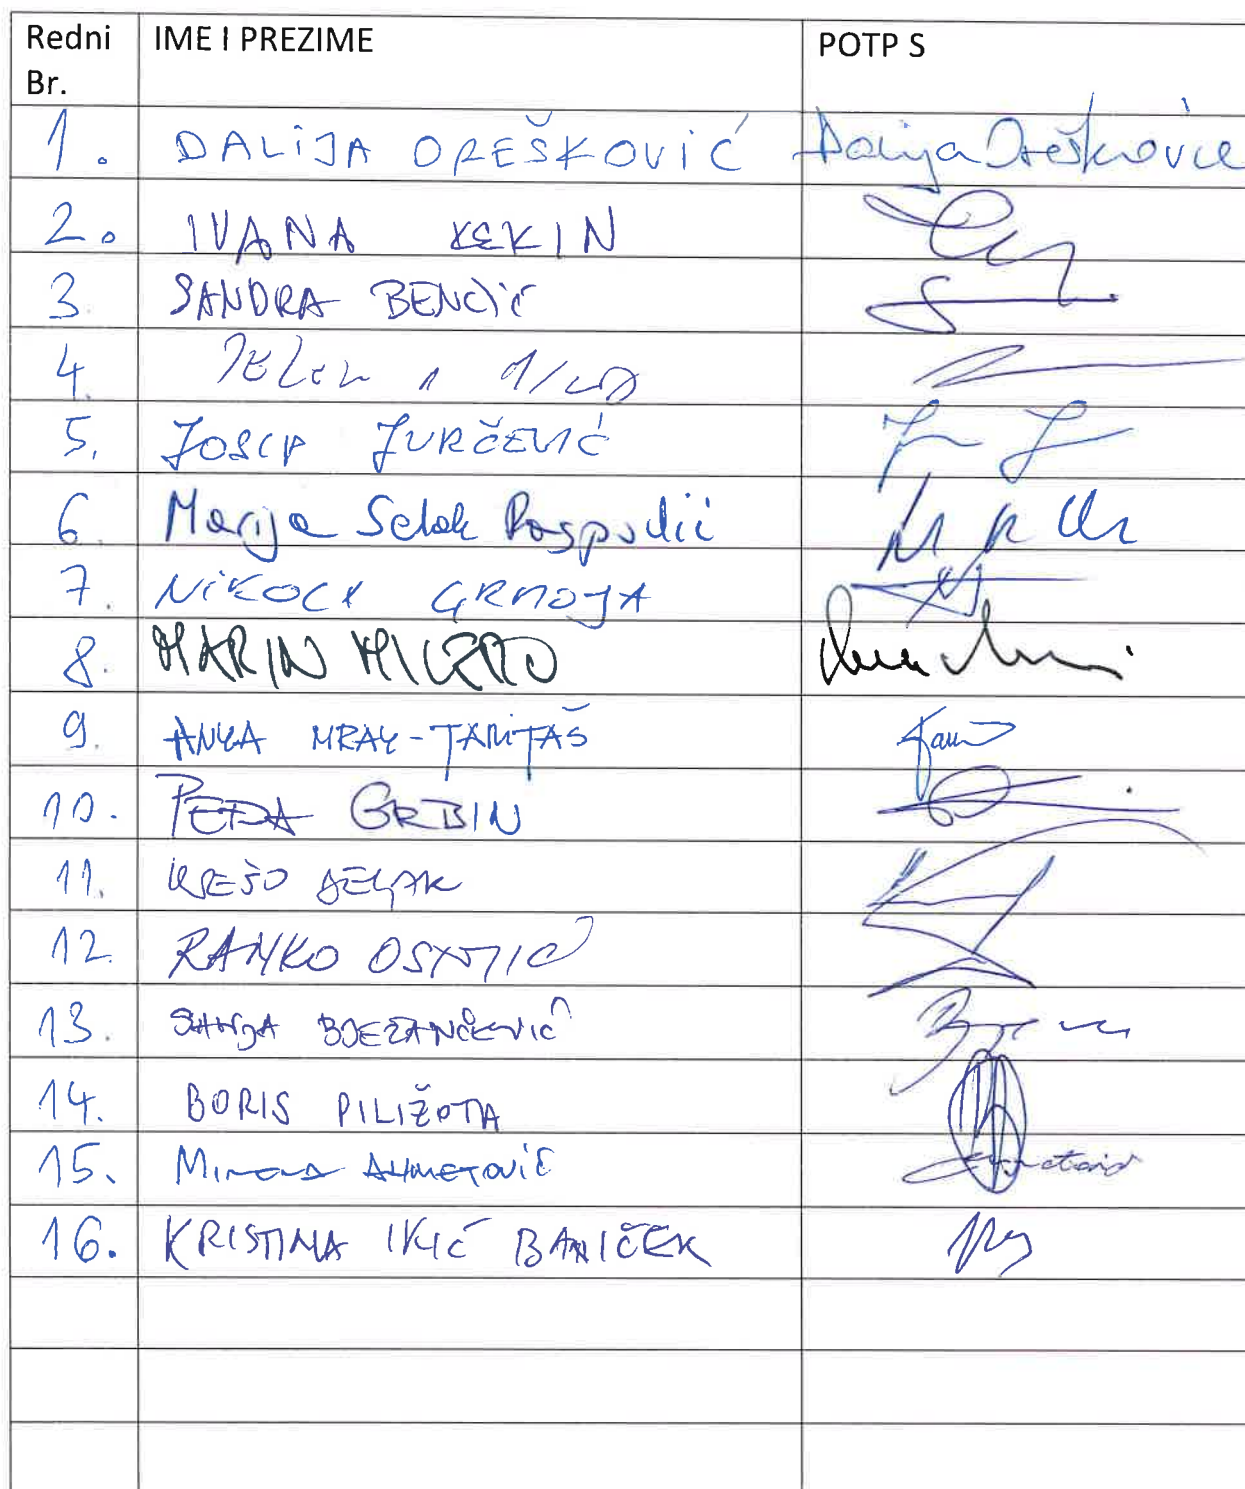 Redni Br. IME I PREZIME POTP S
1. DALIJA OREŠKOVIĆ Dalija Orešković
2. IVANA KEKIN
3. SANDRA BENČIĆ
4.
5. JOSIP JURČEVIĆ
6. Marija Selak Raspudić
7. NIKOLA GRMOJA
8. MARIN MILETIĆ
9. ANKA MRAK-TARITAŠ
10. PEĐA GRBIN
11. KREŠO BELJAK
12. RANKO OSTOJIĆ
13. SANJA BJEŽANČEVIĆ
14. BORIS PILIŽOTA
15. Mirela AHMETOVIĆ
16. KRISTINA IKIĆ BANIČEK